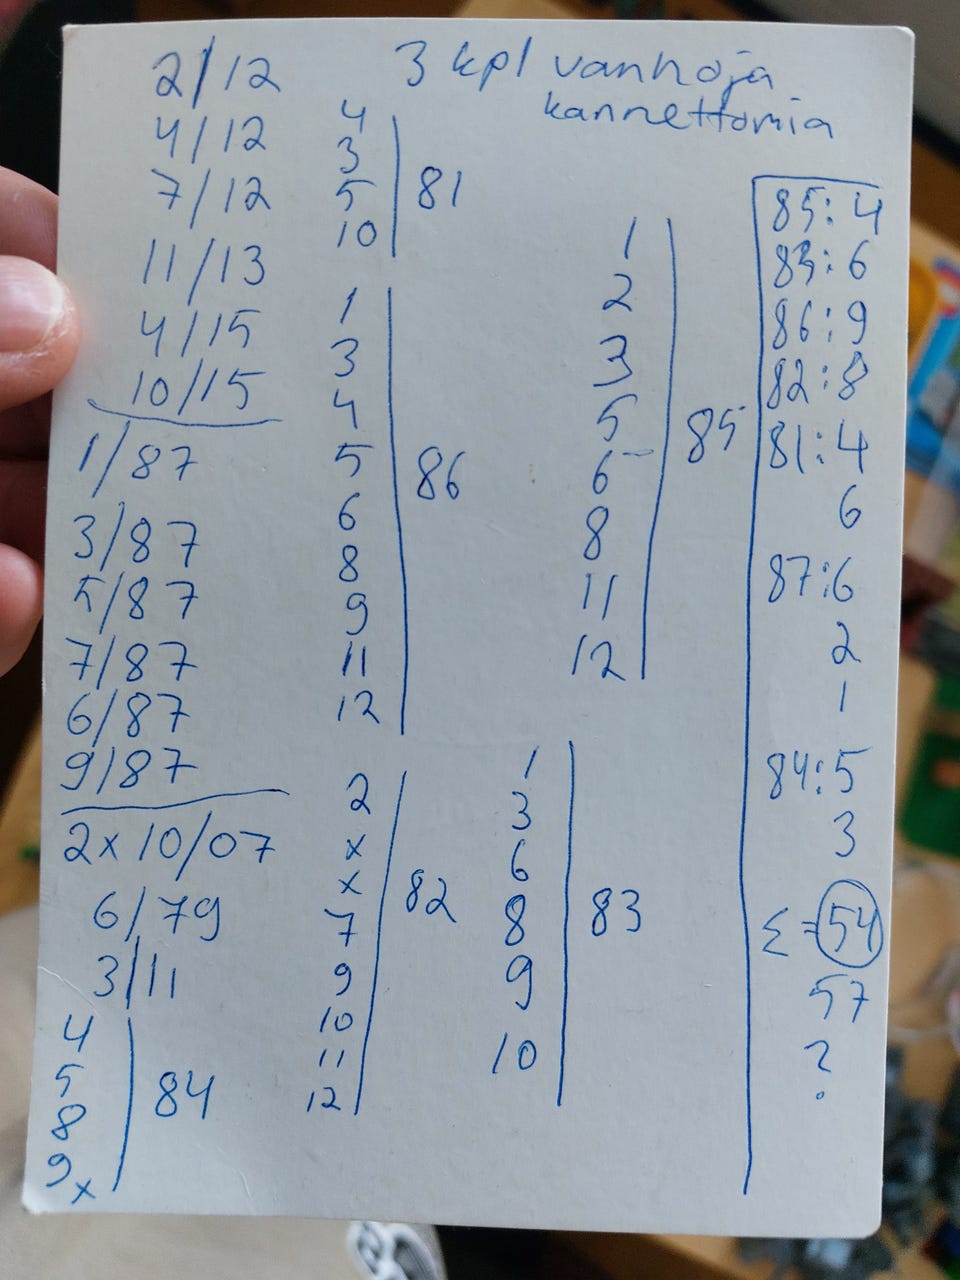 3 kpl vanhoja
kannettomia
2/12
4/12
7/12
11/13
4/15
10/15
1/87
3/87
5/87
7/87
6/87
9/87
2x10/07
6/79
3/11
4
5
8
9x
84
4
3
5
10
81
1
3
4
5
6
8
9
11
12
86
2
x
x
7
9
10
11
12
82
1
2
3
5
6
8
11
12
85
1
3
6
8
9
10
83
85:4
83:6
86:9
82:8
81:4
6
87:6
2
1
84:5
3
Σ=54
57
?